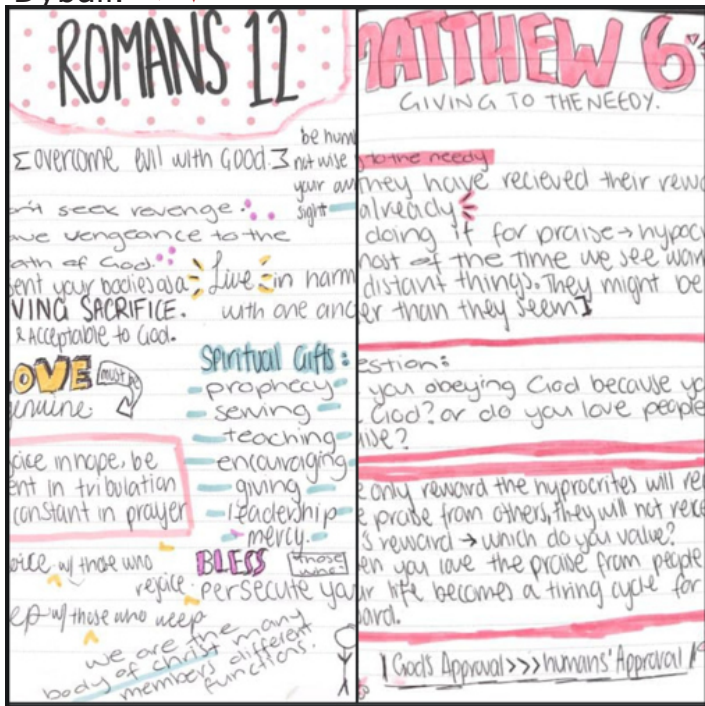 ROMANS 12
Σ overcome evil with Good. 3
be hum
not wise
your own
sight
on't seek revenge.
ave vengeance to the
ath of God.
sent your bodies as a
VING SACRIFICE.
& Acceptable to God.
Live in harm
with one ano
OVE must be
enuine.
Spiritual Gifts:
prophecy
serving
teaching
encouraging
giving
leadership
mercy.
oice in hope, be
ent in tribulation
constant in prayer
oice w/ those who
rejoice.
ep w/ those who weep
BLESS those who:
persecute you
we are the
body of christ many
members different
functions.
MATTHEW 6
GIVING TO THE NEEDY.
to the needy
They have recieved their rewa
already
doing it for praise → hypoc
most of the time we see wan
distant things. They might be
er than they seem]
estion:
you obeying God because yo
God? or do you love people
ise?
e only reward the hyprocrites will rec
e praise from others, they will not rece
's reward → which do you value?
en you love the praise from people
ur life becomes a tiring cycle for
ard.
God's Approval >>> humans' Approval